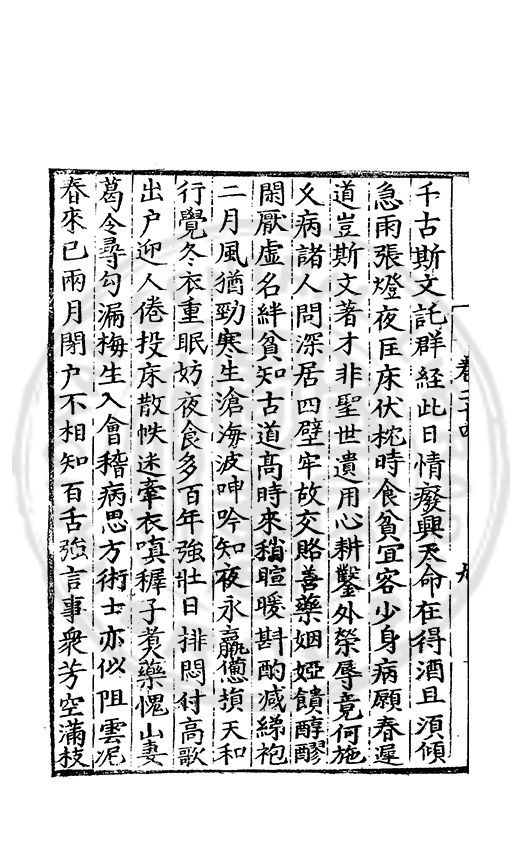 卷二十四
千古斯文託群經此日情癈興天命在得酒且須傾
急雨張燈夜匡床伏枕時食貧宜客少身病願春遲
道豈斯文著才非聖世遺用心耕鑿外榮辱竟何施
乂病諸人問深居四壁牢故交賂善藥姻婭饋醇醪
閑厭虛名絆貧知古道高時來稍暄暖斟酌减綈袍
二月風猶勁寒生滄海波呻吟知夜永羸憊損天和
行覺冬衣重眠妨夜食多百年強壯日排悶付高歌
出户迎人倦投床散帙迷牽衣嗔穉子煑藥愧山妻
葛令尋勾漏梅生入會稽病思方術士亦似阻雲泥
春來已兩月閉户不相知百舌強言事衆芳空滿枝